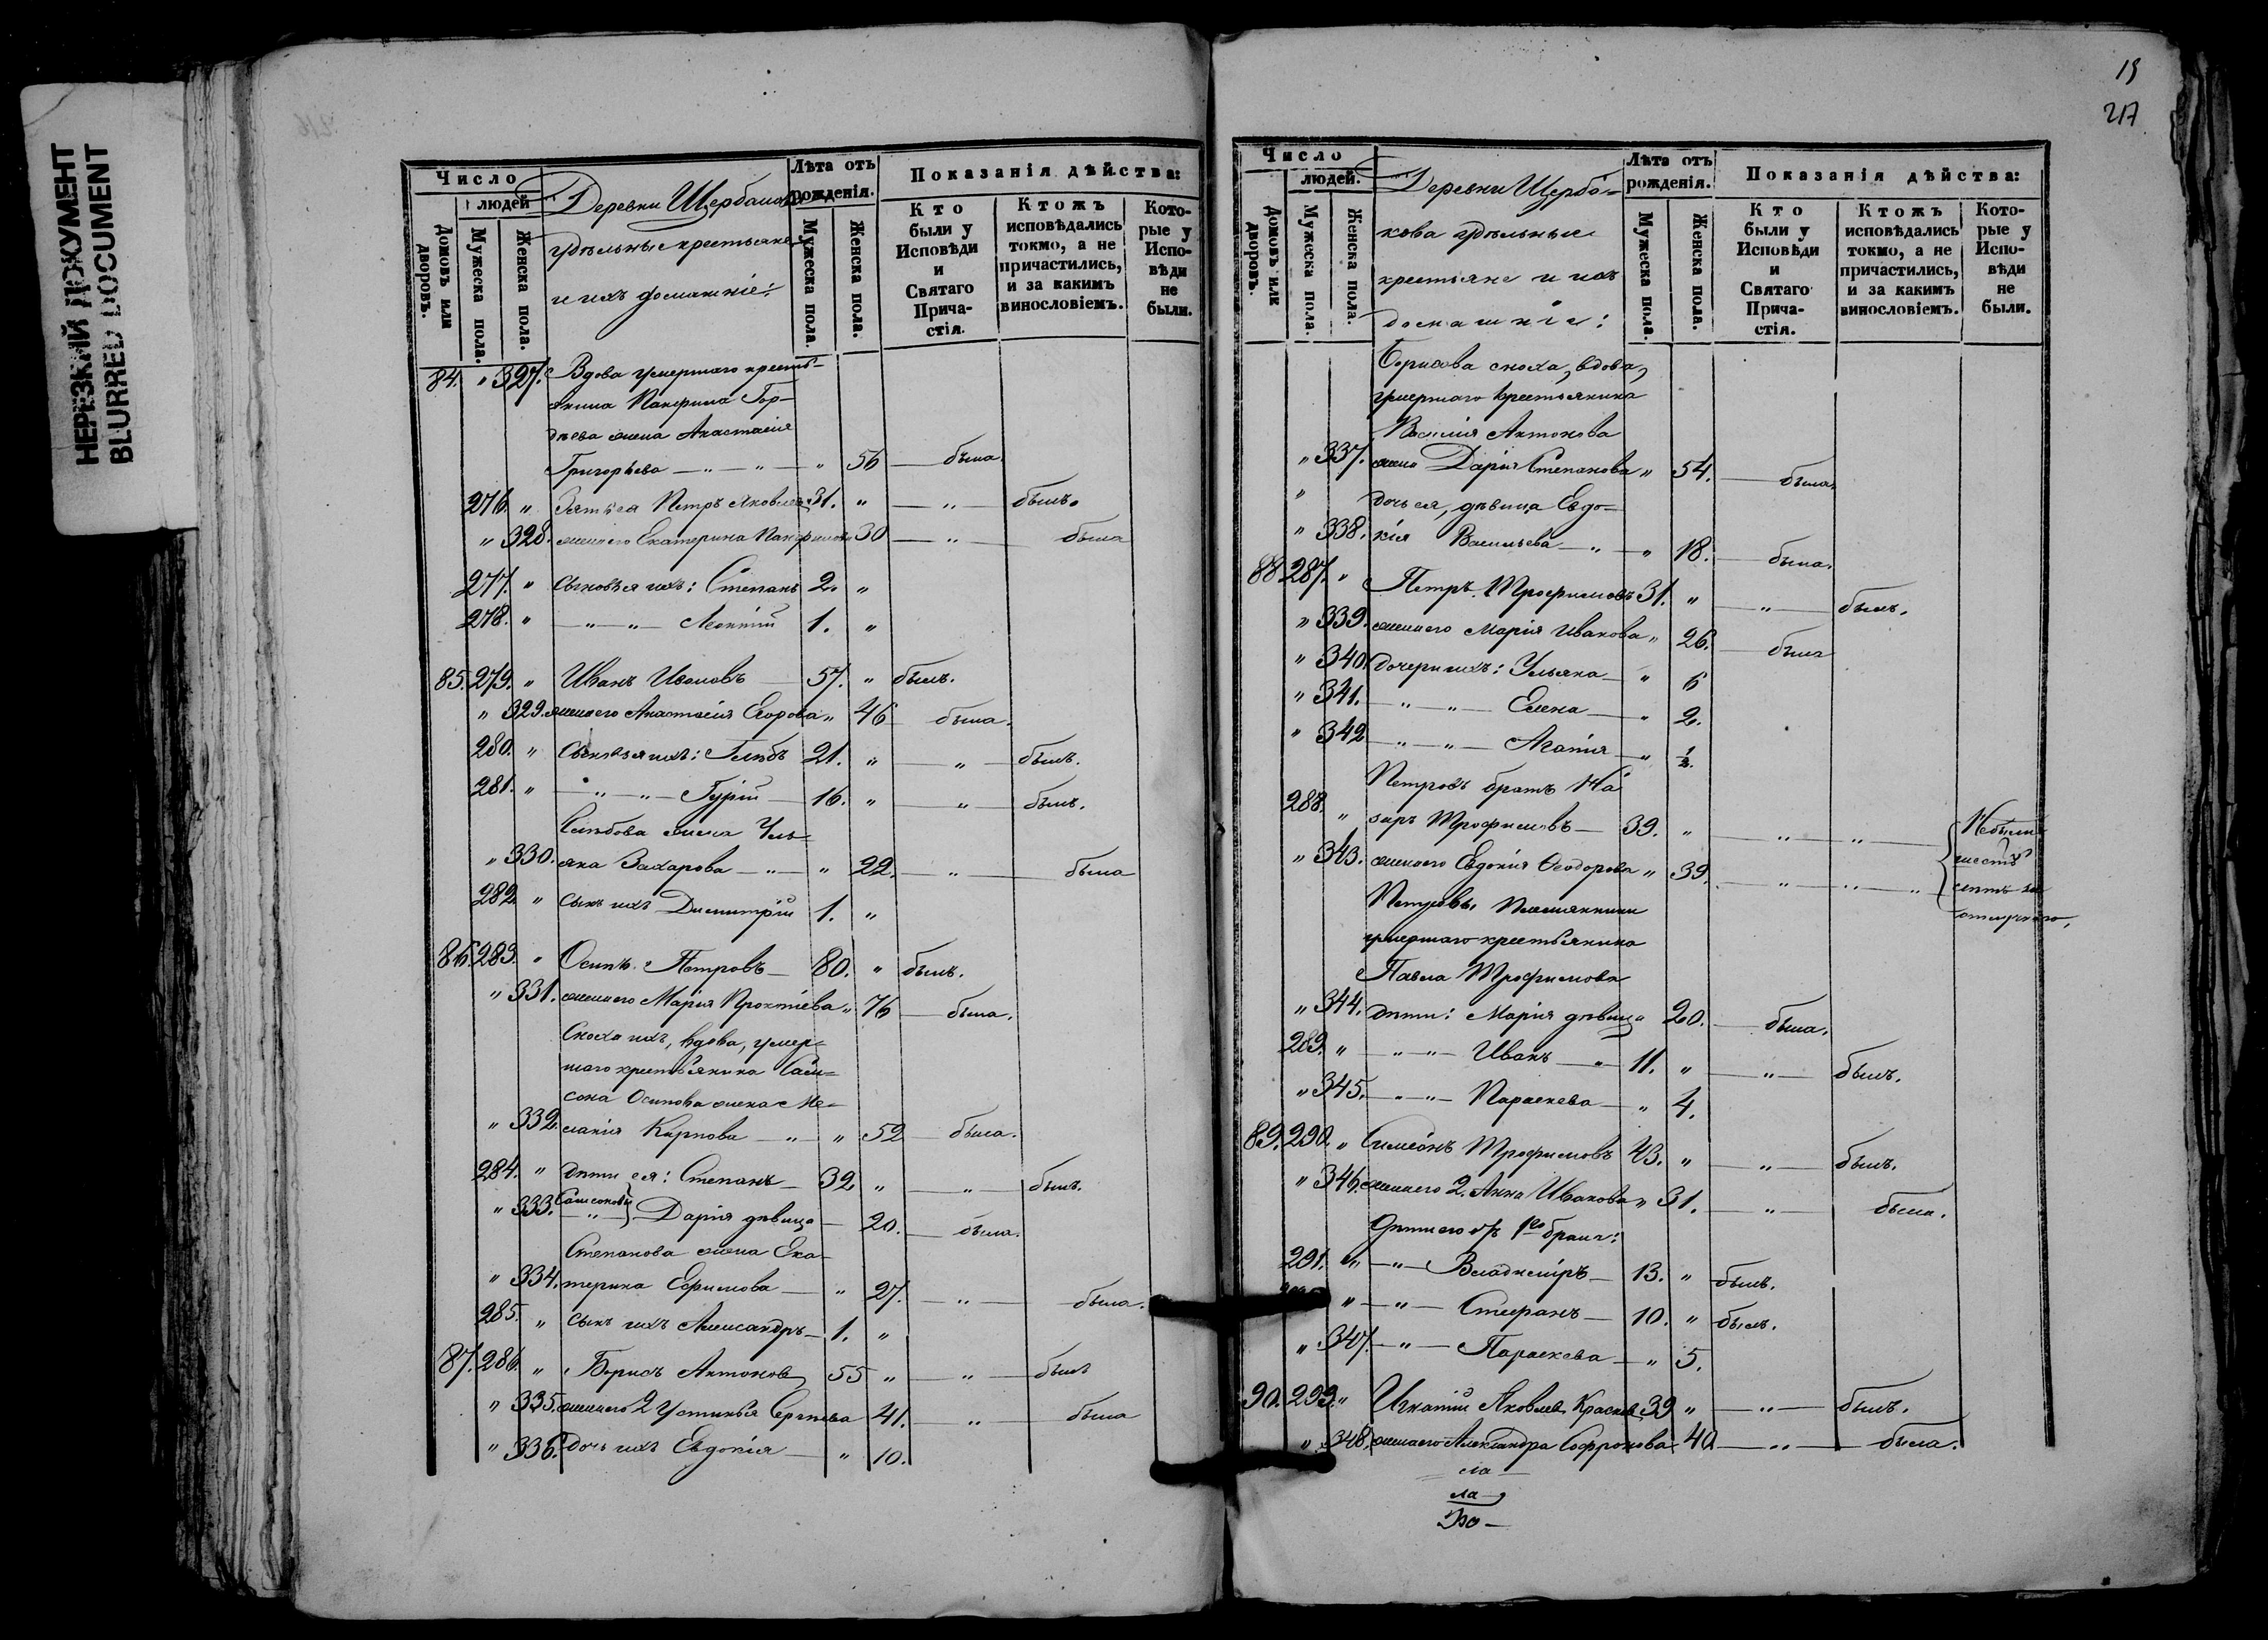 НЕРЕЗКИЙ ДОКУМЕНТ
BLURRED DOCUMENT
Число
людей
Домовъ или дворовъ.
Мужеска пола.
Женска пола.
Деревни Щербакова
удѣльные крестьяне
и ихъ домашніе:
Лѣта отъ рожденія.
Мужеска пола.
Женска пола.
Показанія дѣйства:
Кто были у Исповѣди и Святаго Причастія.
Ктожъ исповѣдались токмо, а не причастились, и за какимъ винословіемъ.
Которые у Исповѣди не были.
84. " 327. Вдова умершаго кресть-
янина Панфила Гор-
дѣева жена Анастасія
Григорьева — " — " — " 56 — была.
276. " Зять ея Петръ Яковлевъ 31. " — " — былъ.
" 328. жена его Екатерина Панфилова 30 — " — была
277. " Сыновья ихъ: Степанъ 2. "
278. " — " — " — Леонтій 1. "
85. 279. " Иванъ Ивановъ — 57. " былъ.
" 329. жена его Анастасія Егорова " 46 — была.
280. " Сыновья ихъ: Глѣбъ 21. " — " — былъ.
281. " — " — " — Гурій — 16. " — " — былъ.
Глѣбова жена Улъ-
" 330. яна Захарова — " — " 22. — " — была
282. " Сынъ ихъ Димитрій 1. "
86. 283. " Осипъ Петровъ — 80. " былъ.
" 331. жена его Марія Прокопіева " 76 — была.
Сноха ихъ, вдова, умер-
шаго крестьянина Сам-
сона Осипова жена Ме-
" 332. ланія Карпова — " — " 52 — была.
284. " дѣти ея: Степанъ — 32. " — " — былъ.
" 333. Самсоновы — " — Дарія дѣвица — 20. — была.
Степанова жена Ека-
" 334. терина Ефимова — " 27. — " — была.
285. " Сынъ ихъ Александръ — 1. "
87. 286. " Борисъ Антоновъ 55 " — " — былъ
" 335. жена его 2 Устинья Сергѣева 41. — " — была
" 336. дочь ихъ Евдокія — " 10.
19
217
Число
людей.
Домовъ или дворовъ.
Мужеска пола.
Женска пола.
Деревни Щерба-
кова удѣльные
крестьяне и ихъ
домашніе:
Лѣта отъ рожденія.
Мужеска пола.
Женска пола.
Показанія дѣйства:
Кто были у Исповѣди и Святаго Причастія.
Ктожъ исповѣдались токмо, а не причастились, и за какимъ винословіемъ.
Которые у Исповѣди не были.
Борисова сноха, вдова,
умершаго крестьянина
Василія Антонова
" 337. жена Дарія Степанова " 54. — была.
" дочь ея, дѣвица Евдо-
" 338. кія Васильева — " — " 18. — была.
88. 287. " Петръ Трофимовъ 31. " — " — былъ.
" 339. жена его Марія Иванова " 26. — была
" 340. дочери ихъ: Ульяна — " 6
" 341. — " — " — Елена — " 2.
" 342 — " — " — Агапія — " ½.
Петровъ братъ На-
288. " заръ Трофимовъ — 39. " — " — " — Небыли
" 343. жена его Евдокія Ѳеодорова " 39. — " — " — "
Петровы племянники
умершаго крестьянина
Павла Трофимова
" 344. дѣти: Марія дѣвица 20. — была.
289. " — " — " — Иванъ — " 11. " — " — былъ.
" 345. — " — " — Параскева — " 4.
89. 290. " Симеонъ Трофимовъ 43. " — " — былъ.
" 346. жена его 2. Анна Иванова " 31. — " — была.
Дѣти его отъ 1го брака:
291. " — " — Владиміръ — 13. " — былъ.
" — " — Стефанъ — 10. " былъ.
" 347. — " — Параскева — " 5.
90. 293. " Игнатій Яковлевъ Красновъ 39 " — " — былъ.
" 348. жена его Александра Софронова 40 — " — была.
ла
ла